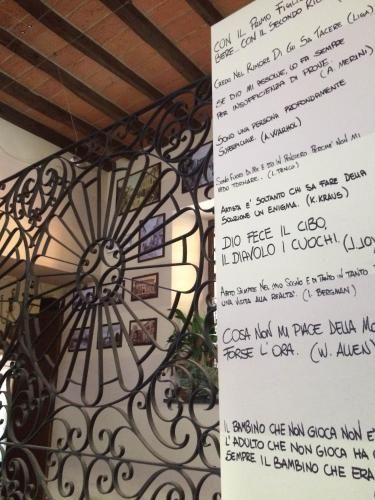 CON IL PRIMO FIGLIO
BERE. CON IL SECONDO
CREDO NEL RUMORE DI CHI SA TACERE (LIGA
SE DIO MI ASSOLVE, LO FA SEMPRE
PER INSUFFICIENZA DI PROVE. (A. MERINI)
SONO UNA PERSONA PROFONDAMENTE
SUPERFICIALE. (A. WARHOL)
NON MI
TORNARE. (L. TENCO)
ARTISTA E' SOLTANTO CHI SA FARE DELLA
SOLUZIONE UN ENIGMA. (K. KRAUS)
DIO FECE IL CIBO,
IL DIAVOLO I CUOCHI. (J. JOY
ABITO SEMPRE NEL MIO SOGNO E DI TANTO IN TANTO
UNA VISITA ALLA REALTA'. (I. BERGMAN)
COSA NON MI PIACE DELLA MO
FORSE L'ORA. (W. ALLEN)
IL BAMBINO CHE NON GIOCA NON E'
L'ADULTO CHE NON GIOCA HA
SEMPRE IL BAMBINO CHE ERA